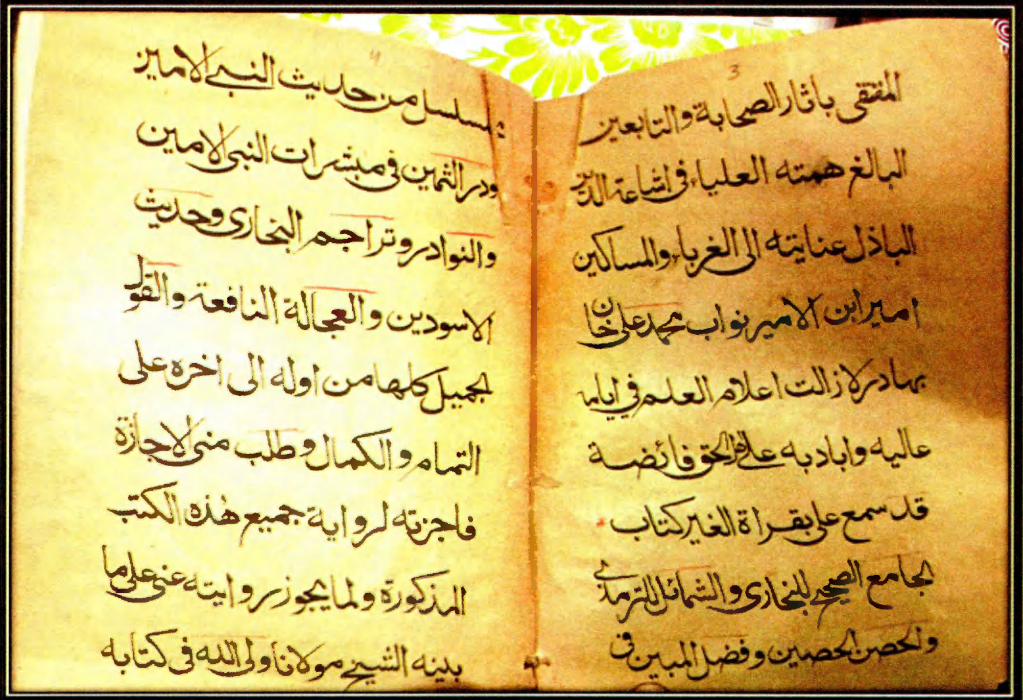 3
المقتفى باثار الصحابة والتابعين
البالغ همته العلياء فى اشاعة الدين
الباذل عنايته الى الغرباء والمساكين
امير ابن الامير نواب محمد على خان
بهادر لازالت اعلام العلم فى ايامه
عاليه وايادبه على اهل الحق فائضة
قد سمع على بقراة الغير كتاب
الجامع الصحيح للبخارى والشمائل للترمذى
والحصن الحصين وفضل المبين فى
4
مسلسل من حديث النبى الامين
ودر الثمين فى مبشرات النبى الامين
والنوادر وتراجم البخارى وحديث
الاسودين والعجالة النافعة والقول
الجميل كلها من اوله الى اخره على
التمام والكمال وطلب منى الاجازة
فاجزته لرواية جميع هذه الكتب
المذكورة ولما يجوز روايته عنى على ما
بينه الشيخ مولانا ولى الله فى كتابه